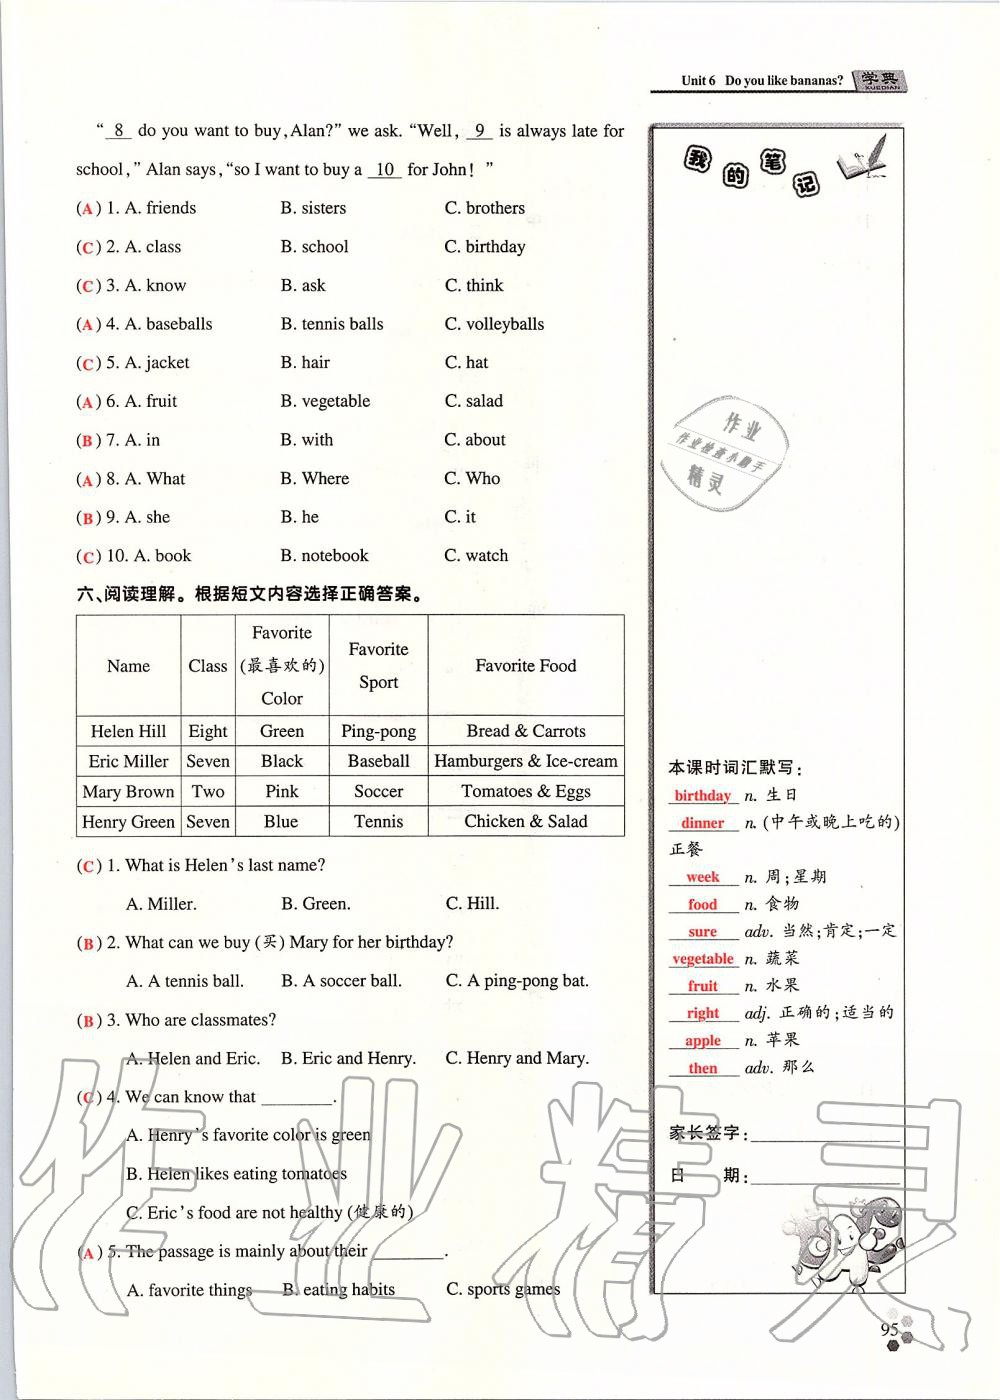 Unit 6 Do you like bananas?
学典
XUEDIAN
" 8 do you want to buy, Alan?" we ask. "Well, 9 is always late for
school," Alan says, "so I want to buy a 10 for John! "
(A) 1. A. friends B. sisters C. brothers
(C) 2. A. class B. school C. birthday
(C) 3. A. know B. ask C. think
(A) 4. A. baseballs B. tennis balls C. volleyballs
(C) 5. A. jacket B. hair C. hat
(A) 6. A. fruit B. vegetable C. salad
(B) 7. A. in B. with C. about
(A) 8. A. What B. Where C. Who
(B) 9. A. she B. he C. it
(C) 10. A. book B. notebook C. watch
六、阅读理解。根据短文内容选择正确答案。
Name Class Favorite (最喜欢的) Color Favorite Sport Favorite Food
Helen Hill Eight Green Ping-pong Bread & Carrots
Eric Miller Seven Black Baseball Hamburgers & Ice-cream
Mary Brown Two Pink Soccer Tomatoes & Eggs
Henry Green Seven Blue Tennis Chicken & Salad
(C) 1. What is Helen's last name?
A. Miller. B. Green. C. Hill.
(B) 2. What can we buy (买) Mary for her birthday?
A. A tennis ball. B. A soccer ball. C. A ping-pong bat.
(B) 3. Who are classmates?
A. Helen and Eric. B. Eric and Henry. C. Henry and Mary.
(C) 4. We can know that ________.
A. Henry's favorite color is green
B. Helen likes eating tomatoes
C. Eric's food are not healthy (健康的)
(A) 5. The passage is mainly about their ________.
A. favorite things B. eating habits C. sports games
我的笔记
作业
作业检查小助手
精灵
本课时词汇默写:
birthday n. 生日
dinner n. (中午或晚上吃的)
正餐
week n. 周;星期
food n. 食物
sure adv. 当然;肯定;一定
vegetable n. 蔬菜
fruit n. 水果
right adj. 正确的;适当的
apple n. 苹果
then adv. 那么
家长签字:________
日 期:________
作业精灵
95